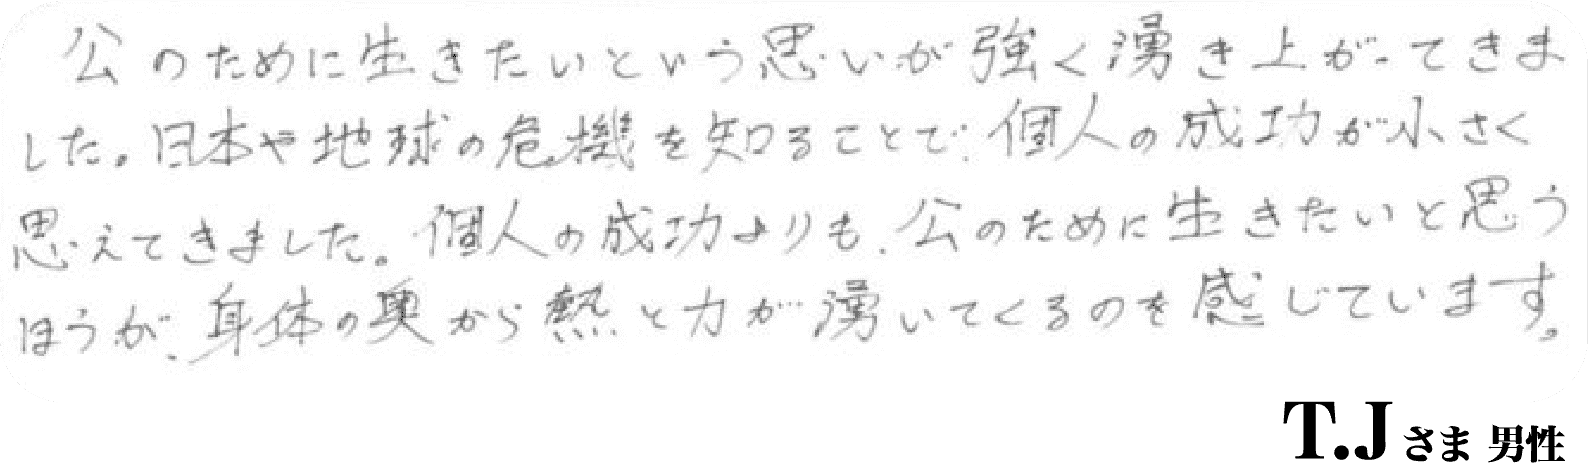 公のために生きたいという思いが強く湧き上がってきま
した。日本や地球の危機を知ることで、個人の成功が小さく
思えてきました。個人の成功よりも、公のために生きたいと思う
ほうが、身体の奥から熱と力が湧いてくるのを感じています。
T.Jさま 男性